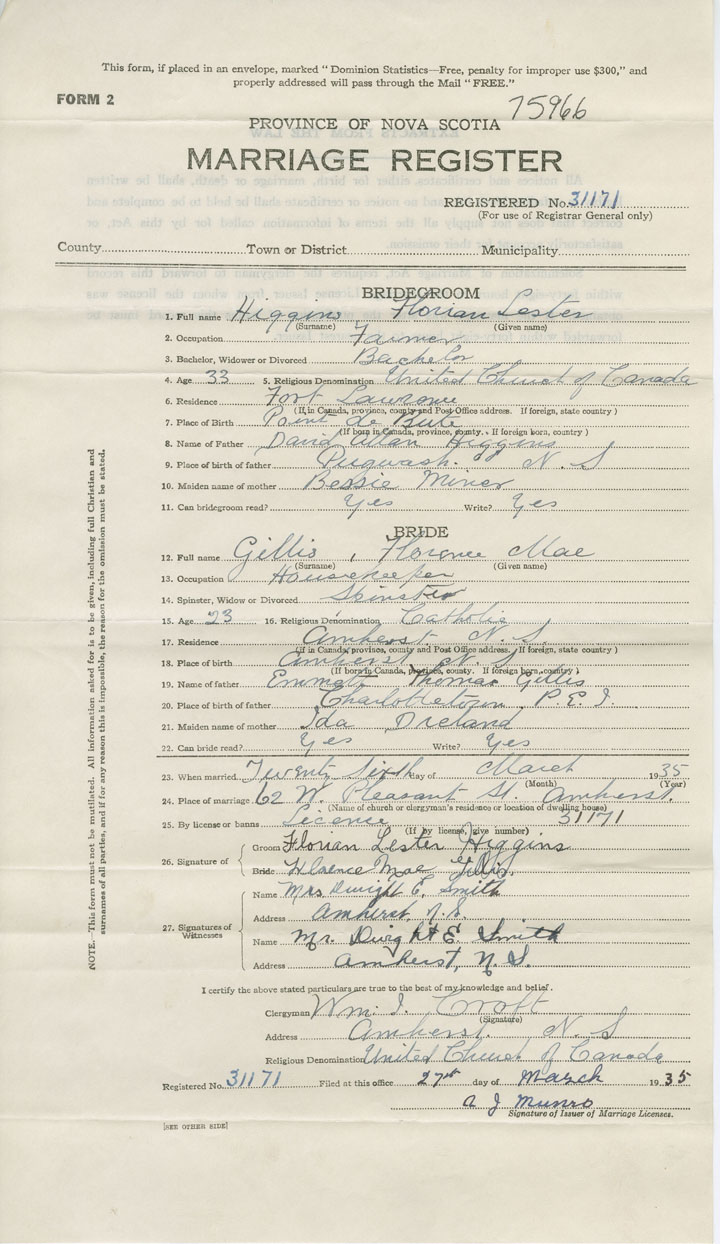 This form, if placed in an envelope, marked "Dominion Statistics—Free, penalty for improper use $300," and
properly addressed will pass through the Mail "FREE."
FORM 2
75966
PROVINCE OF NOVA SCOTIA
MARRIAGE REGISTER
REGISTERED No. 31171
(For use of Registrar General only)
County Town or District Municipality
BRIDEGROOM
1. Full name Higgins Florian Lester
(Surname) (Given name)
2. Occupation Farmer
3. Bachelor, Widower or Divorced Bachelor
4. Age 33 5. Religious Denomination United Church of Canada
6. Residence Fort Lawrence
(If in Canada, province, county and Post Office address. If foreign, state country)
7. Place of Birth Point de Bute
(If born in Canada, province, county. If foreign born, country)
8. Name of Father David Allan Higgins
9. Place of birth of father Pugwash. N. S
10. Maiden name of mother Bessie Miner
11. Can bridegroom read? Yes Write? Yes
BRIDE
12. Full name Gillis, Florence Mae
(Surname) (Given name)
13. Occupation Housekeeper
14. Spinster, Widow or Divorced Spinster
15. Age 23 16. Religious Denomination Catholic
17. Residence Amherst N. S.
(If in Canada, province, county and Post Office address. If foreign, state country)
18. Place of birth Amherst N. S.
(If born in Canada, province, county. If foreign born, country)
19. Name of father Thomas Gillis
20. Place of birth of father Charlottetown P. E. I.
21. Maiden name of mother Ida
22. Can bride read? Yes Write? Yes
23. When married Twenty Sixth day of March 1935
(Month) (Year)
24. Place of marriage 62 W. Pleasant St. Amherst.
(Name of church or clergyman's residence or location of dwelling house)
25. By license or banns Licence 31171
(If by license, give number)
26. Signature of
Groom Florian Lester Higgins
Bride Florence Mae Gillis
27. Signatures of Witnesses
Name Mrs Dwight E. Smith
Address Amherst, N.S.
Name Mr. Dwight E. Smith
Address Amherst, N.S.
I certify the above stated particulars are true to the best of my knowledge and belief.
Clergyman Wm. I. Croft
(Signature)
Address Amherst. N. S
Religious Denomination United Church of Canada
Registered No. 31171 Filed at this office 27 day of March 1935
A J Munro
Signature of Issuer of Marriage Licenses.
[SEE OTHER SIDE]
NOTE.—This form must not be mutilated. All information asked for is to be given, including full Christian and
surnames of all parties, and if for any reason this is impossible, the reason for the omission must be stated.